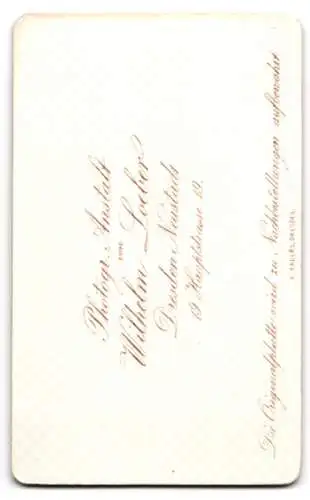 Photogr. Anstalt
von
Wilhelm Loeber
Dresden-Neustadt
19 Hauptstrasse 19.
Die Originalplatte wird zu Nachbestellungen aufbewahrt